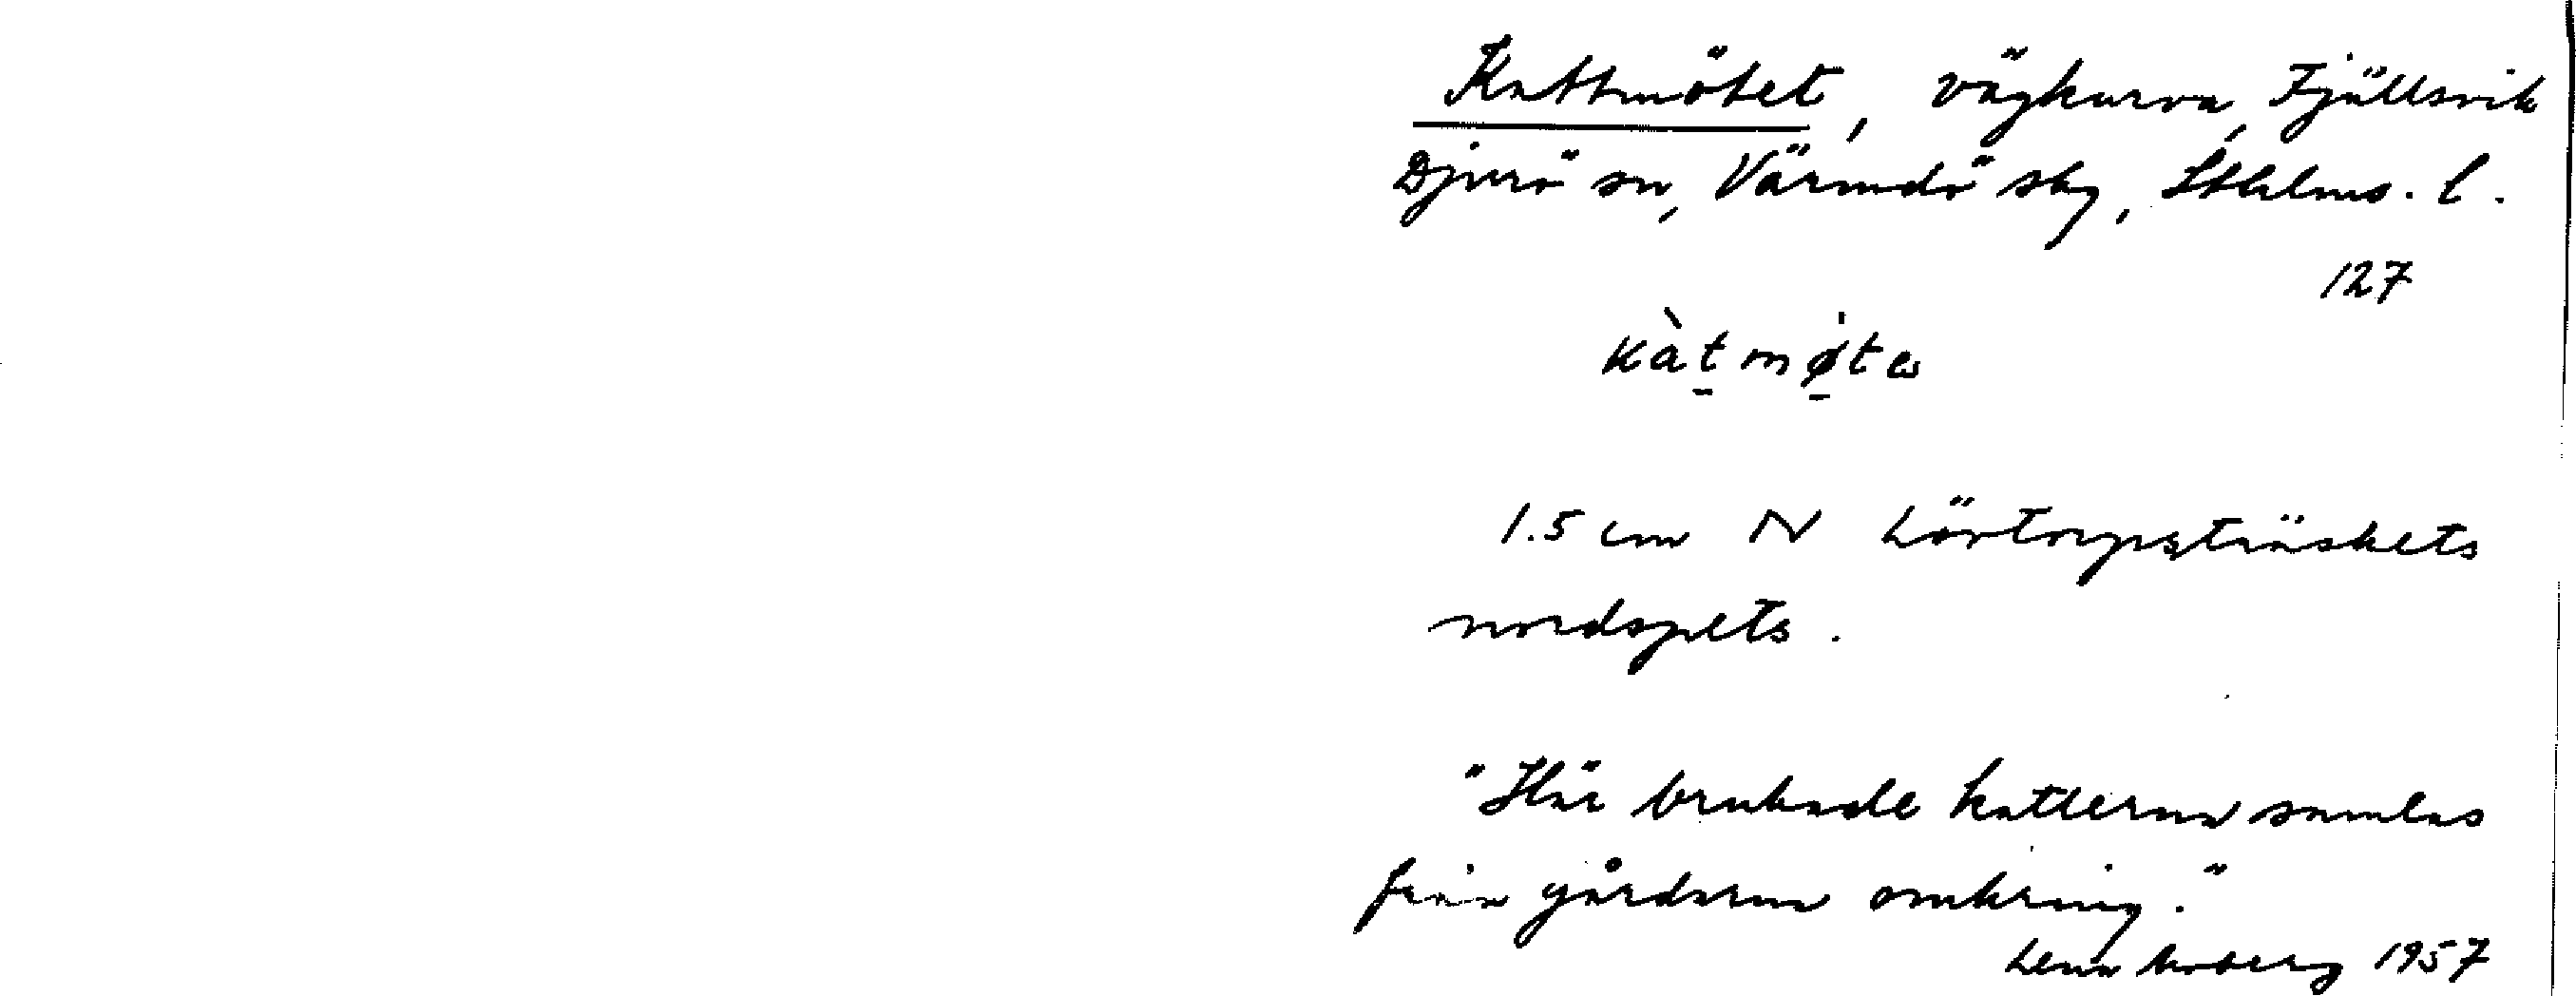 Kattmötet, vägkurva, Fjällsvik
Djurö sn, Värmdö skg, Sthlms. l.
127
kàtmø̀tə
1.5 cm N Lövtorpsträskets
nordspets.
"Här brukade katterna samlas
från gårdarna omkring."
Lena Moberg 1957